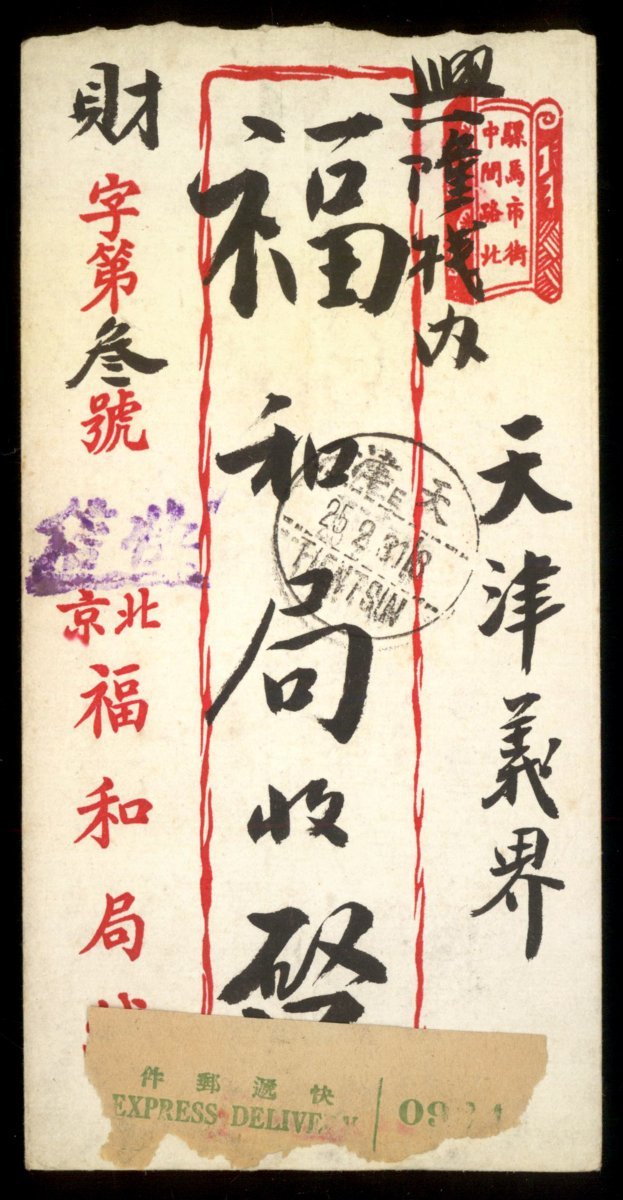 天津義界
興隆棧内
騾馬市街
中間路北
福和局收啓
財字第叁號
北京
福和局
天津
25 2 30 16
TIENTSIN
快遞郵件
EXPRESS DELIVERY